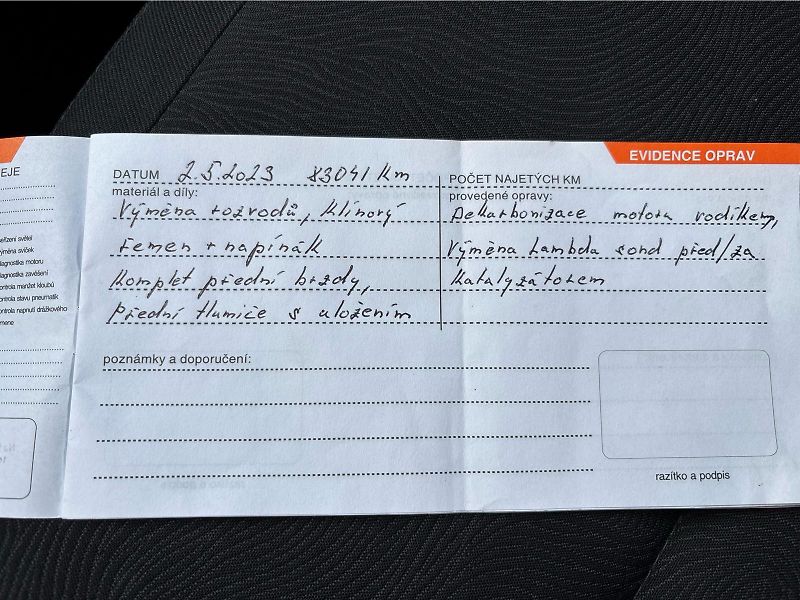 EVIDENCE OPRAV
DATUM 2.5.2023 83041 Km
POČET NAJETÝCH KM
materiál a díly:
Výměna rozvodů, Klínový
řemen + napínák
Komplet přední brzdy,
Přední tlumiče s uložením
provedené opravy:
Dekarbonizace motoru vodíkem,
Výměna Lambda sond před/za
Katalyzátorem
poznámky a doporučení:
razítko a podpis
EJE
eřízení světel
výměna svíček
diagnostika motoru
diagnostika zavěšení
kontrola manžet kloubů
kontrola stavu pneumatik
kontrola napnutí drážkového
mene